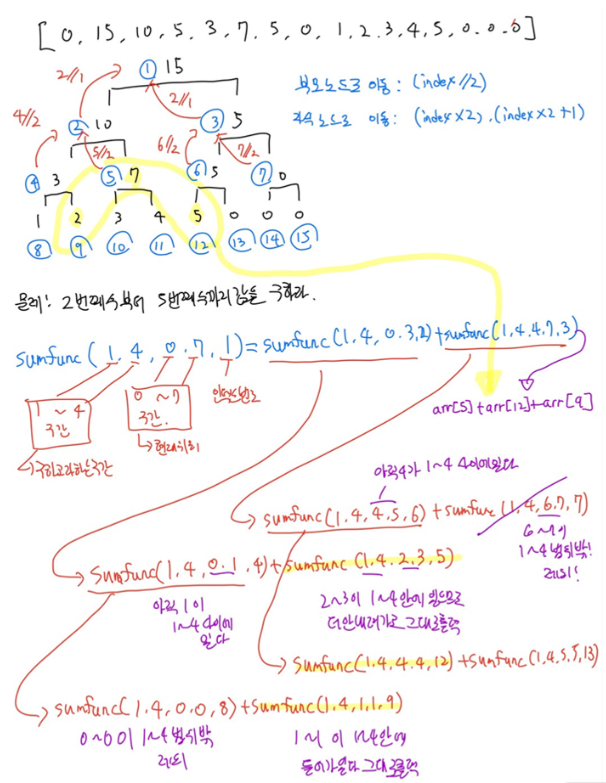 [ 0, 15, 10, 5, 3, 7, 5, 0, 1, 2, 3, 4, 5, 0, 0, 0 ]
2//1
① 15
부모노드로 이동 : (index//2)
4//2
2//1
자식노드로 이동 : (index×2), (index×2+1)
② 10
③ 5
5//2
6//2
7//2
④ 3
⑤ 7
⑥ 5
⑦ 0
1 2 3 4 5 0 0 0
⑧ ⑨ ⑩ ⑪ ⑫ ⑬ ⑭ ⑮
문제! 2번째수부터 5번째수까지합을 구하라.
sumfunc(1, 4, 0, 7, 1) = sumfunc(1, 4, 0, 3, 2) + sumfunc(1, 4, 4, 7, 3)
1 ~ 4
구간
0 ~ 7
구간.
인덱스번호
arr[5] + arr[12] + arr[9]
구하고자하는구간
현재위치
아직4가 1~4 사이에있다
sumfunc(1, 4, 4, 5, 6) + sumfunc(1, 4, 6, 7, 7)
6~7이
1~4 범위밖!
제외!
sumfunc(1, 4, 0, 1, 4) + sumfunc(1, 4, 2, 3, 5)
아직 1이
1~4 사이에
있다
2~3이 1~4안에 있으므로
더안내려가고 그대로출력
sumfunc(1, 4, 4, 4, 12) + sumfunc(1, 4, 5, 5, 13)
sumfunc(1, 4, 0, 0, 8) + sumfunc(1, 4, 1, 1, 9)
0~0이 1~4범위밖
제외
1~1이 1~4안에
들어가있다 그대로출력